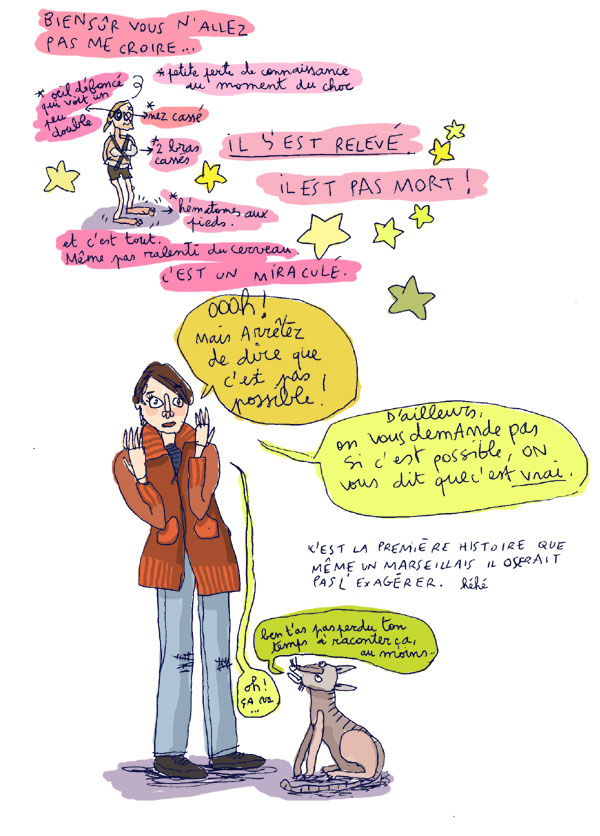 BIENSÛR VOUS N'ALLEZ
PAS ME CROIRE...
*petite perte de connaissance
au moment du choc
*oeil défoncé
qui voit un
peu
double
*nez cassé
*2 bras
cassés
*hématomes aux
pieds.
IL S'EST RELEVÉ
IL EST PAS MORT !
et c'est tout.
Même pas ralenti du cerveau.
C'EST UN MIRACULÉ.
OOOh!
Mais Arrêtez
de dire que
c'est pas
possible !
D'ailleurs,
on vous demAnde pas
si c'est possible, ON
vous dit que c'est vrai.
K'EST LA PREMIÈRE HISTOIRE QUE
MÊME UN MARSEILLAIS IL OSERAIT
PAS L'EXAGÉRER. héhé
ben t'as pas perdu ton
temps à raconter ça,
au moins..
oh!
ÇA va
...